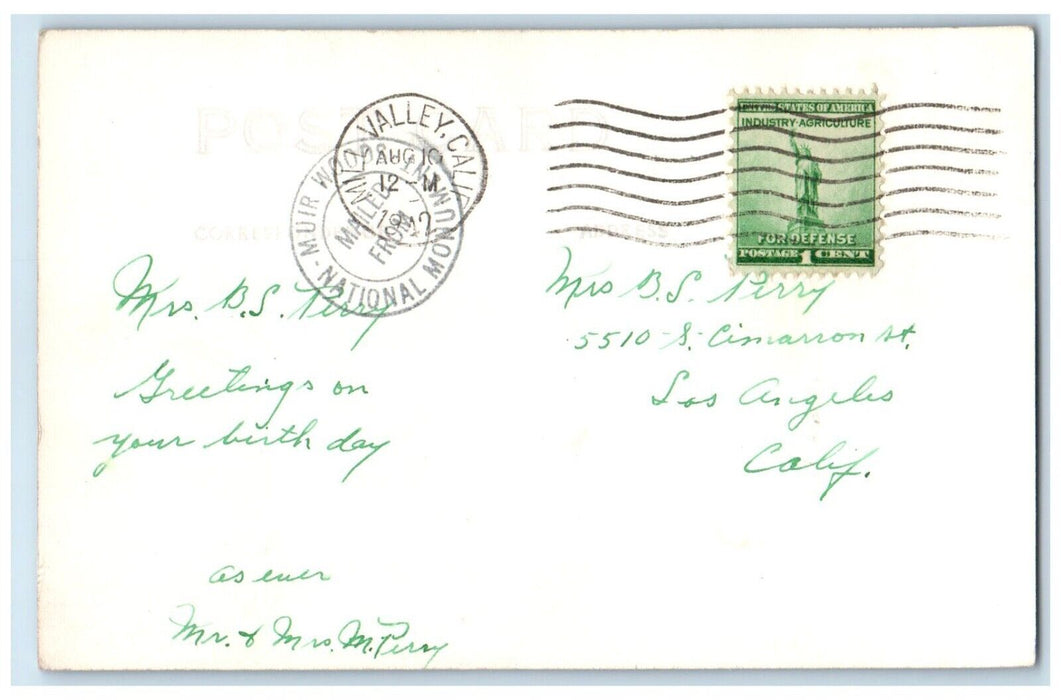 POST CARD
MILL VALLEY, CALIF.
AUG 10
12 - M
MUIR WOODS
MAILED
FROM
-NATIONAL MONUMENT-
UNITED STATES OF AMERICA
INDUSTRY·AGRICULTURE
FOR DEFENSE
POSTAGE 1 CENT
CORRESPONDENCE
ADDRESS
Mrs. B.S. Perry
Greetings on
your birth day
as ever
Mr. & Mrs. M. Perry
Mrs B.S. Perry
5510 S. Cimarron St.
Los Angeles
Calif.